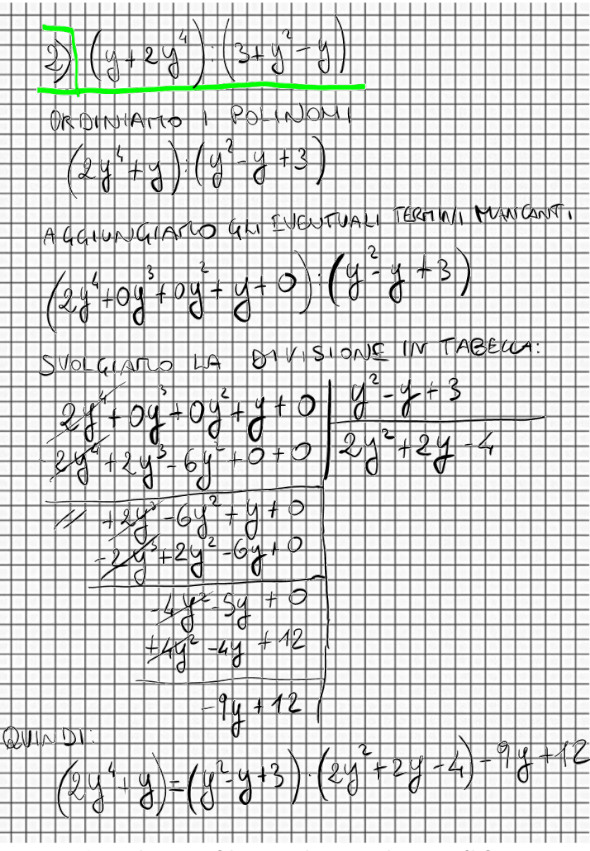 2) (y+2y⁴):(3+y²-y)
ORDINIAMO I POLINOMI
(2y⁴+y):(y²-y+3)
AGGIUNGIAMO GLI EVENTUALI TERMINI MANCANTI
(2y⁴+0y³+0y²+y+0):(y²-y+3)
SVOLGIAMO LA DIVISIONE IN TABELLA:
2y⁴+0y³+0y²+y+0 | y²-y+3
-2y⁴+2y³-6y²+0+0 | 2y²+2y-4
// +2y³-6y²+y+0
-2y³+2y²-6y+0
-4y²-5y+0
+4y²-4y+12
-9y+12
QUINDI:
(2y⁴+y)=(y²-y+3)·(2y²+2y-4)-9y+12